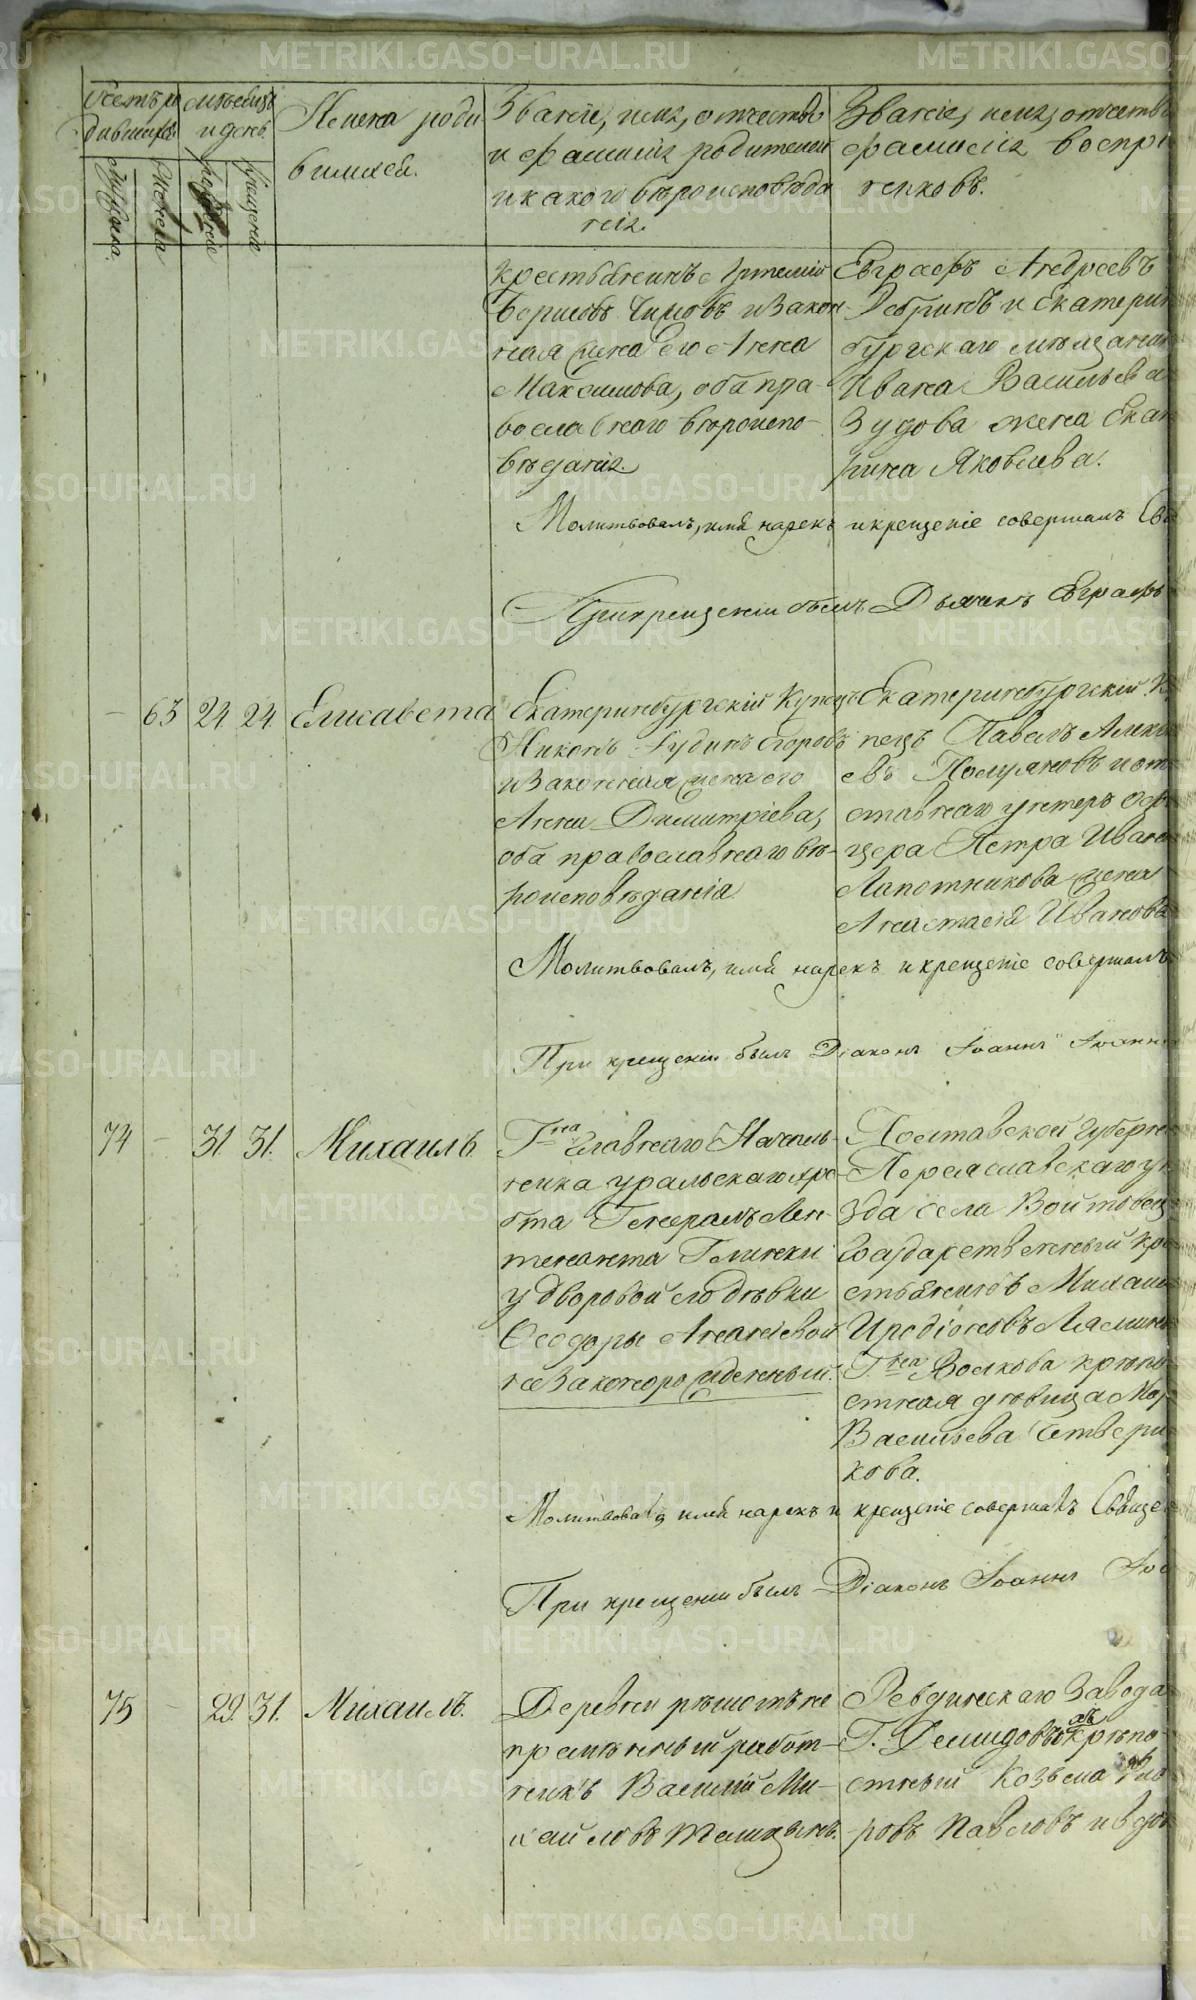 Счетъ ро
дившихся.
Мѣсяцъ
и день.
Имена роди
вшихся.
Званіе, имя, отчество
и фамилія родителей
и какого вѣроисповѣда
нія.
Званіе, имя, отчество
фамилія воспрі
никовъ.
Мужеска.
Женска
рожденія
крещенія
крестьянинъ Артемій
Борисовъ и закон-
ная жена его Анна
Максимова, оба пра-
вославнаго вѣроиспо-
вѣданія.
Евграфъ Андреевъ
и Екатерин
бургскаго мѣщанина
Ивана Васильева
Зудова жена Екате
рина Яковлева.
Молитвовалъ, имя нарекъ и крещеніе совершалъ Свя
При крещеніи былъ Дьячекъ Евграфъ
— 63 24 24 Елисавета
Екатеринбургскій Купецъ
Никонъ Егоровъ
и законная жена его
Анна Димитріева,
оба православнаго вѣ-
роисповѣданія
Екатеринбургскій К
пецъ Павелъ Алекс
евъ Полуяновъ и от
ставнаго унтеръ офи
цера Петра Иванова
Лапотникова жена
Анастасія Иванова
Молитвовалъ, имя нарекъ и крещеніе совершалъ
При крещеніи былъ Діаконъ Іоаннъ Іоанн
74 — 31. 31. Михаилъ
Гна Главнаго Началь-
ника уральскаго хреб-
бта Генералъ Лей-
тенанта Глинки
у дворовой его дѣвки
Ѳеодоры Ананіевой
незаконорожденный.
Полтавской губерн
Переяславскаго уѣ
зда села Войтовец
Государственный кре
стьянинъ Михаилъ
Иродіоновъ
Гна Волкова крѣпо
стная дѣвица Мар
Васильева Четвери
кова.
Молитвовалъ, имя нарекъ и крещеніе совершалъ Священ
При крещеніи былъ Діаконъ Іоаннъ Іоа
75 — 29. 31. Михаилъ.
Деревни Рѣшотъ не
премѣнный работ-
никъ Василій Ми-
хайловъ
Ревдинскаго Завода
Г. Демидовыхъ крѣпо-
стный Козьма
ровъ Павловъ и вдов
METRIKI.GASO-URAL.RU